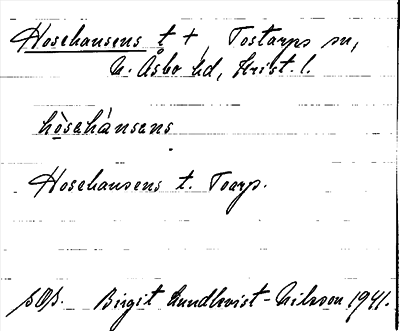 Hosehansens t +, Tostarps sn,
N. Åsbo hd, Krist. l.
hòsehànsens
Hosehansens t. Toarp.
Birgit Lundkvist-Nilsson 1941.